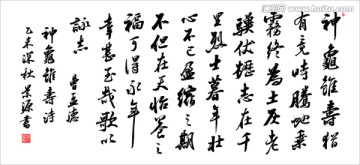 神龜雖壽猶
有竟時騰蛇乘
霧終為土灰老
驥伏櫪志在千
里烈士暮年壯
心不已盈縮之期
不但在天怡養之
福可得永年
幸甚至哉歌以
詠志 曹孟德
神龜雖壽詩
乙未深秋景源書